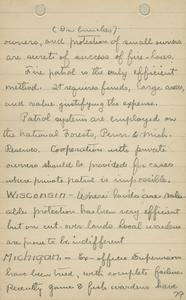 (in bunches)
owners, and protection of small owners
are secret of success of fire-laws.
Fire patrol is the only efficient
method. It requires funds, large areas,
and value justifying the expense.
Patrol system are employed on
the National Forests, Penn. & Mich.
Reserves. Cooperation with private
owners should be provided for cases
where private patrol is impossible.
Wisconsin - Where lands are valu-
able protection has been very efficient
but on cut over lands local wardens
are prone to be indifferent
Michigan - Ex-officio Supervision
have been tried, with complete failure.
Recently game & fish wardens have